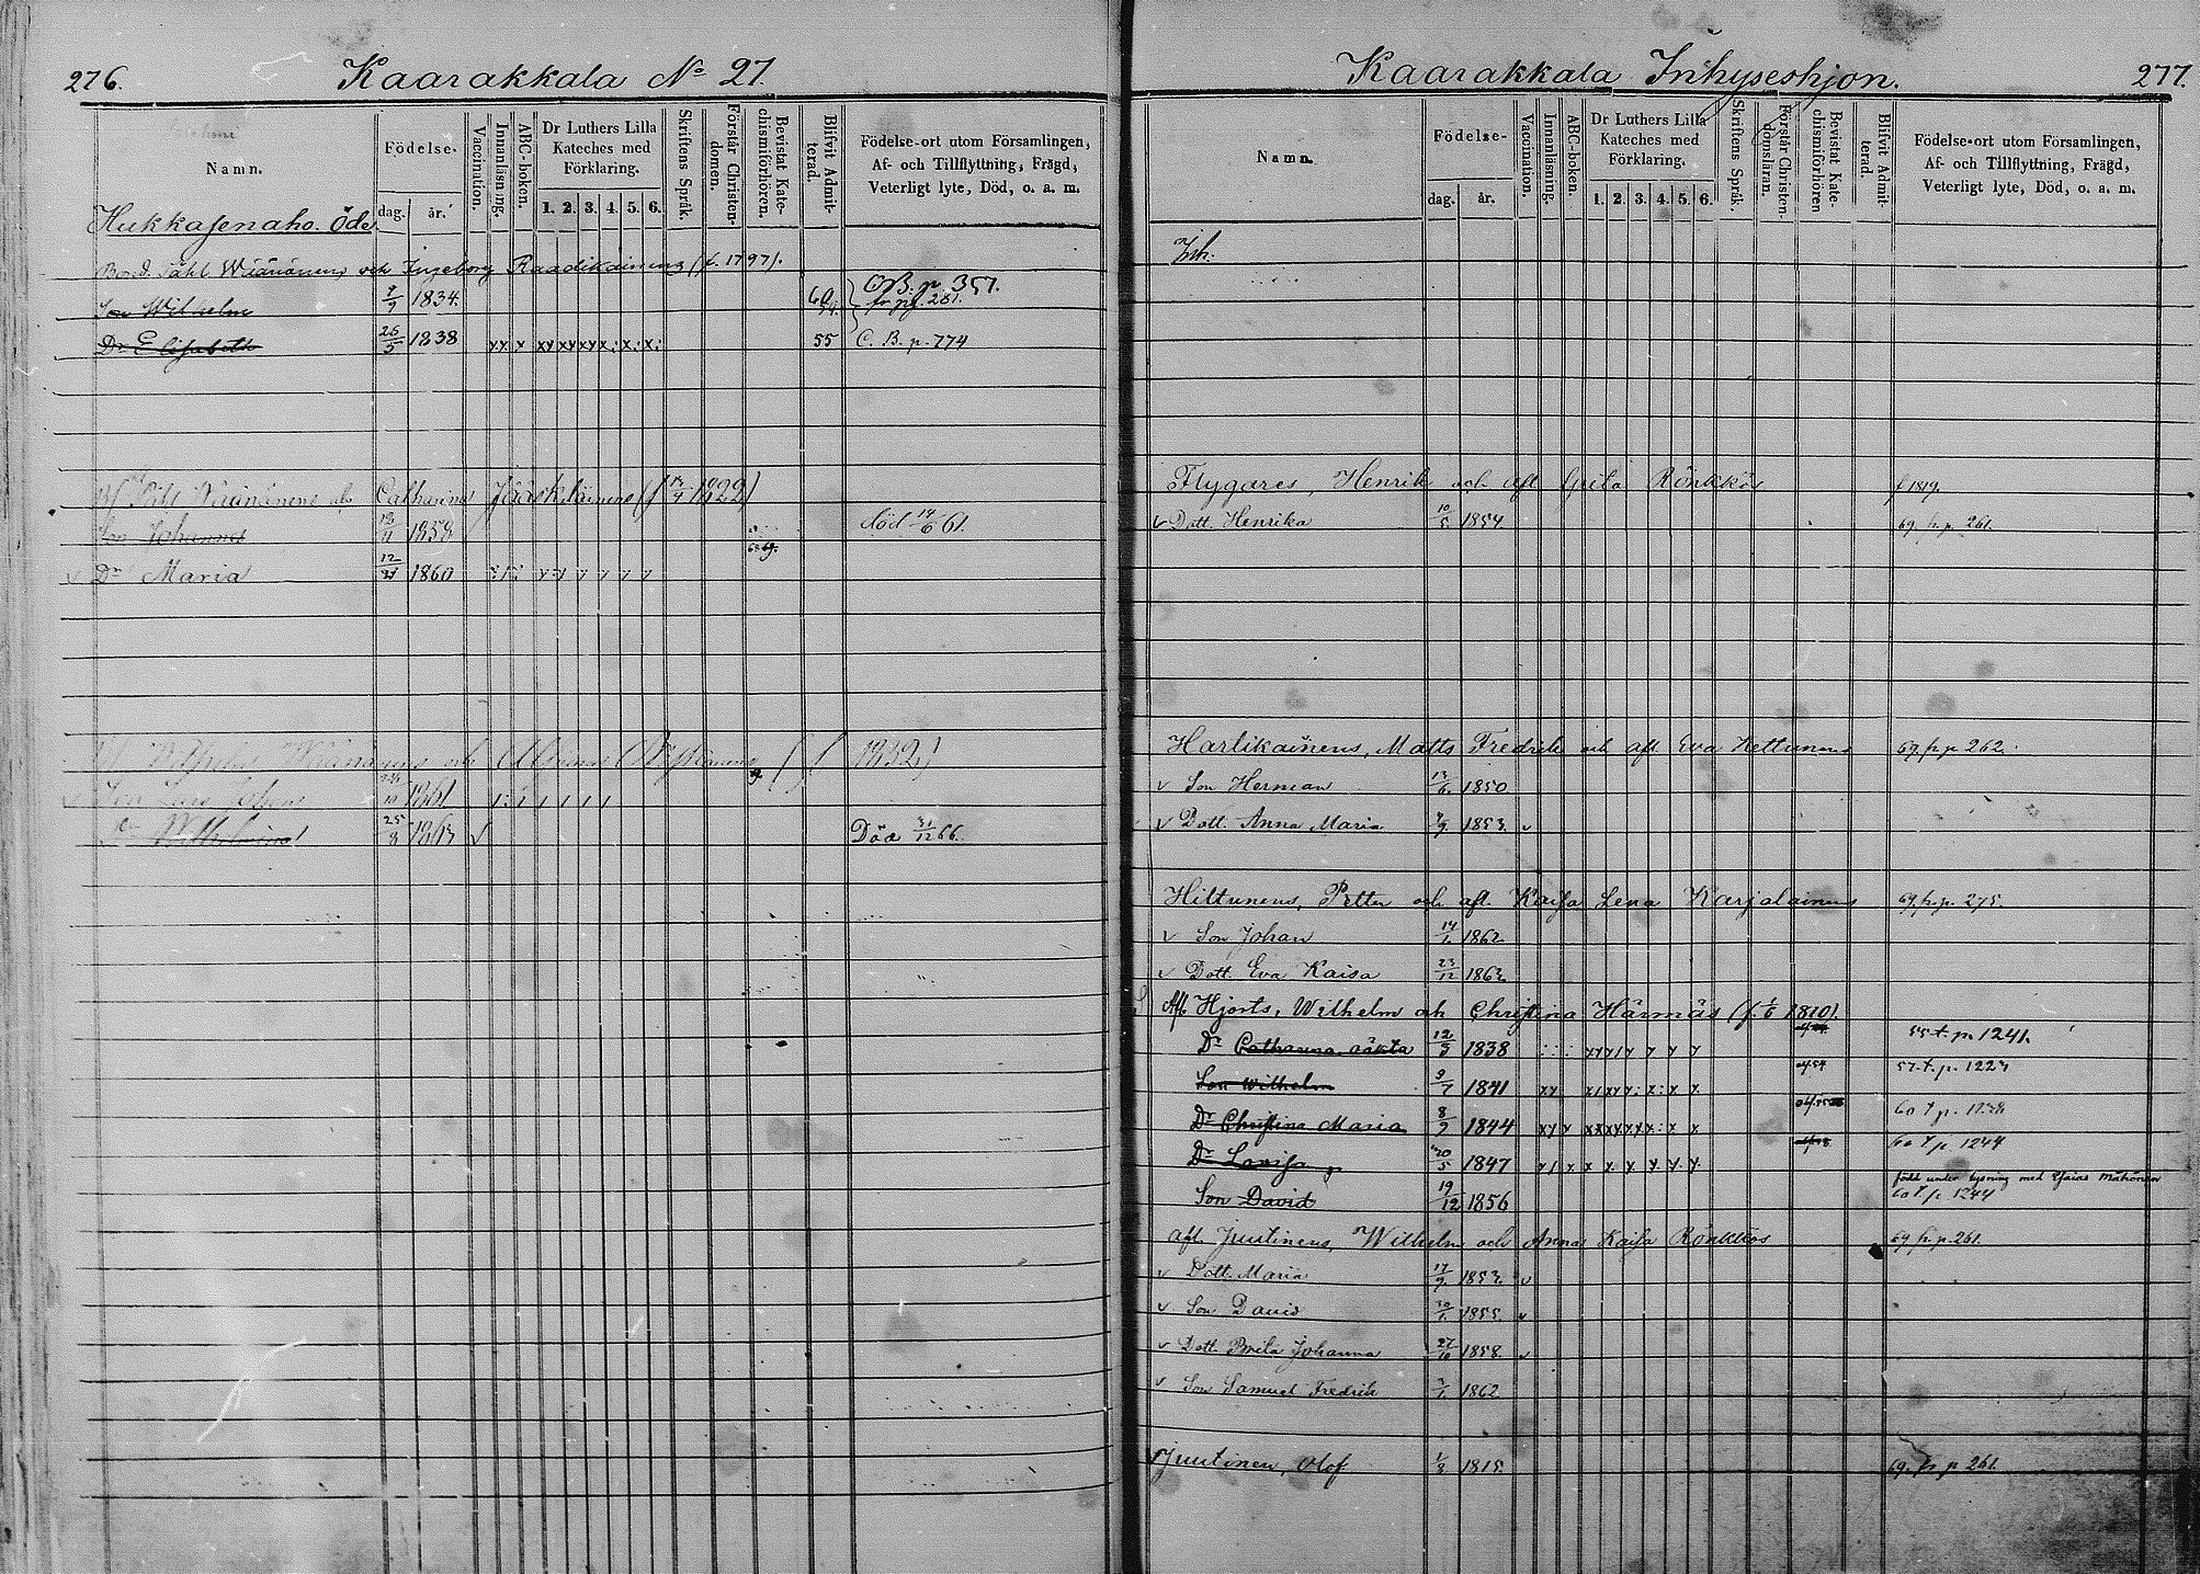 276.
Kaarakkala No 27.
Namn.
Födelse-
dag. år.
Vaccination.
Innanläsning.
ABC-boken.
Dr Luthers Lilla Kateches med Förklaring.
1. 2. 3. 4. 5. 6.
Skriftens Språk.
Förstår Christendomen.
Bevistat Katechismiförhören.
Blifvit Admitterad.
Födelse-ort utom Församlingen,
Af- och Tillflyttning, Frägd,
Veterligt lyte, Död, o. a. m.
Hukkasenaho. Öde
Påhl Wäänänens och Ingeborg Raadikainens (f. 1797).
Son Wilhelm 7/9 1834. 60 C.B. p. 351.
fr pg. 281.
Dr Elisabeth 26/5 1838 55 C. B. p. 774
Wäänänens Catharina Jääskeläinens 1822)
Son Johannes 1858 död 14/6 61.
Dr Maria 1860
Wäänänens 1832)
Son Lars Johan 1861
Dr Wilhelmina 25/8 1863 Död 31/12 66.
Kaarakkala Inhyseshjon.
277.
Namn.
Födelse-
dag. år.
Vaccination.
Innanläsning.
ABC-boken.
Dr Luthers Lilla Kateches med Förklaring.
1. 2. 3. 4. 5. 6.
Skriftens Språk.
Förstår Christendomsläran.
Bevistat Katechismiförhören
Blifvit Admitterad.
Födelse-ort utom Församlingen,
Af- och Tillflyttning, Frägd,
Veterligt lyte, Död, o. a. m.
Inh.
Flygares, Henrik och afl. Greta Rönkkös f 1819.
v Dott. Henrika 10/5 1854 69. fr. p. 261.
Hartikainens, Matts Fredrik och afl. Eva Kettunens 69 fr p 262.
v Son Herman 13/6. 1850
v Dott. Anna Maria 1853. v
Hiltunens, Petter och afl. Kaisa Lena Karjalainens 69. fr. p. 275.
v Son Johan 14/1. 1862
v Dott. Eva Kaisa 23/12 1863
Afl. Hjorts, Wilhelm och Christina Härmäs (f. 1/6 1810).
Dr Catharina oäkta 12/3 1838 55 t. p. 1241.
Son Wilhelm 9/7 1841 57. t. p. 1224
Dr Christina Maria 8/9 1844 60 t p. 1238
Dr Lovisa 20/5 1847 60 t p 1244
Son David 19/12 1856 född under lysning med Esaias Mähönen
60 t. p. 1244
afl. Juutinens, Wilhelm och Anna Kaisa Rönkkös 69 fr. p. 261.
v Dott. Maria 17/9. 1853. v
v Son David 30/1. 1855. v
v Dott. Brita Johanna 27/10 1858. v
v Son Samuel Fredrik 1862
v Juutinen, Olof 1/3 1815. 69. fr p 261.